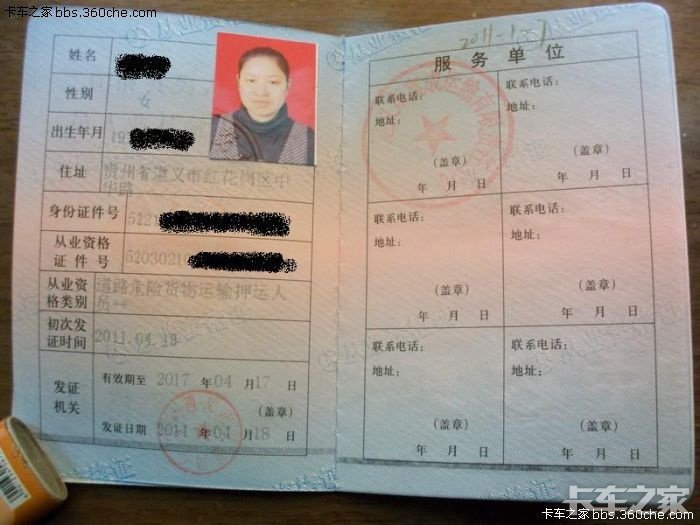 卡车之家 bbs.360che.com
卡车之家 bbs.360che.com
从业资格证
姓名
性别 女
出生年月 19
住址 贵州省遵义市红花岗区中
华路
身份证件号 5221
从业资格
证件号 52030210
从业资
格类别 道路危险货物运输押运人
员
初次发
证时间 2011.04.18
发证
机关
有效期至 2017 年 04 月 17 日
(盖章)
发证日期 2011 年 04 月 18 日
2011-1-
服务单位
联系电话:
地址:
(盖章)
年 月 日
联系电话:
地址:
(盖章)
年 月 日
联系电话:
地址:
(盖章)
年 月 日
联系电话:
地址:
(盖章)
年 月 日
联系电话:
地址:
(盖章)
年 月 日
联系电话:
地址:
(盖章)
年 月 日
卡车之家
卡车之家 bbs.360che.com